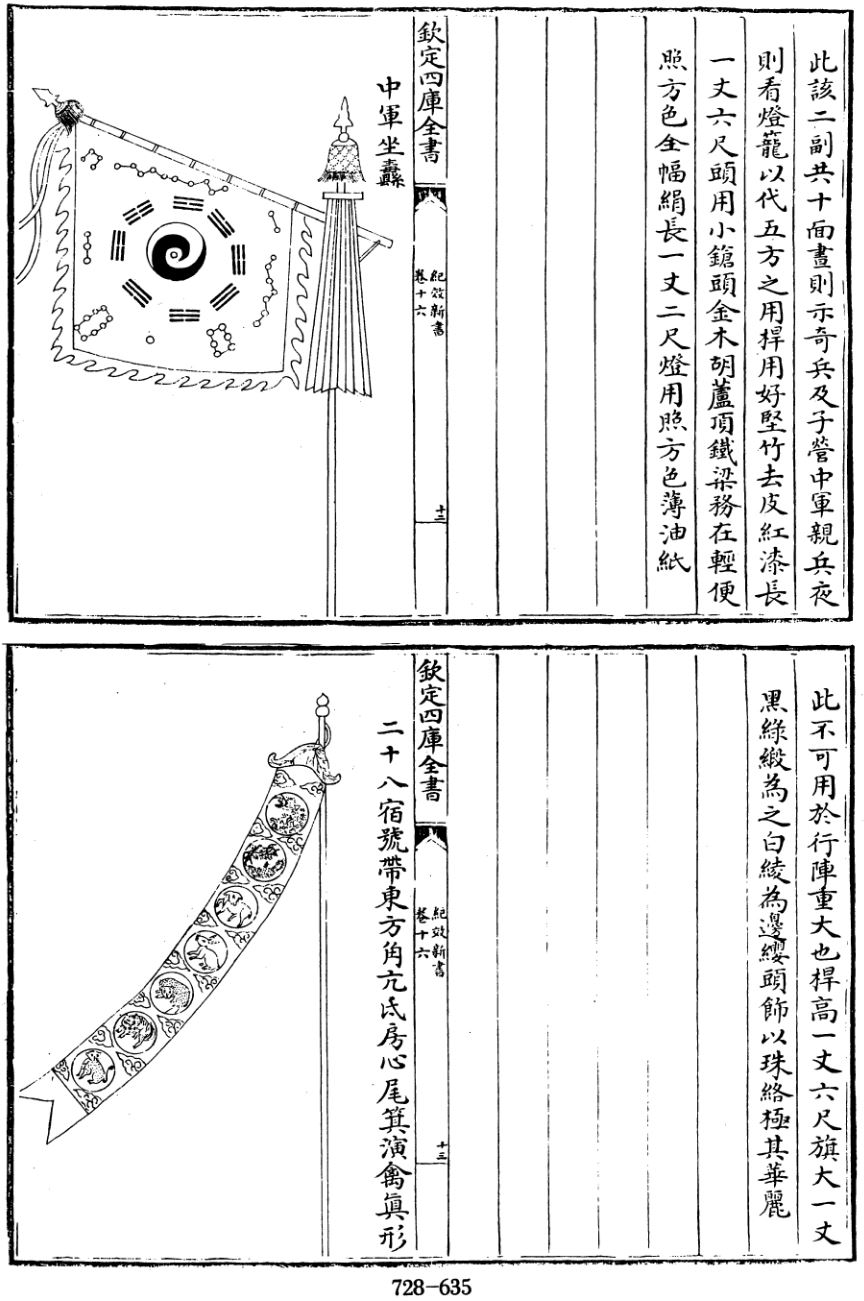 此該二副共十面晝則示奇兵及子營中軍親兵夜
則看燈籠以代五方之用桿用好堅竹去皮紅漆長
一丈六尺頭用小鎗頭金木胡蘆頂鐵梁務在輕便
照方色全幅絹長一丈二尺燈用照方色薄油紙
欽定四庫全書
紀效新書
卷十六
十三
中軍坐纛
此不可用於行陣重大也桿高一丈六尺旗大一丈
黑綠緞為之白綾為邊纓頭飾以珠絡極其華麗
欽定四庫全書
紀效新書
卷十六
十三
二十八宿號帶東方角亢氐房心尾箕演禽真形
728-635